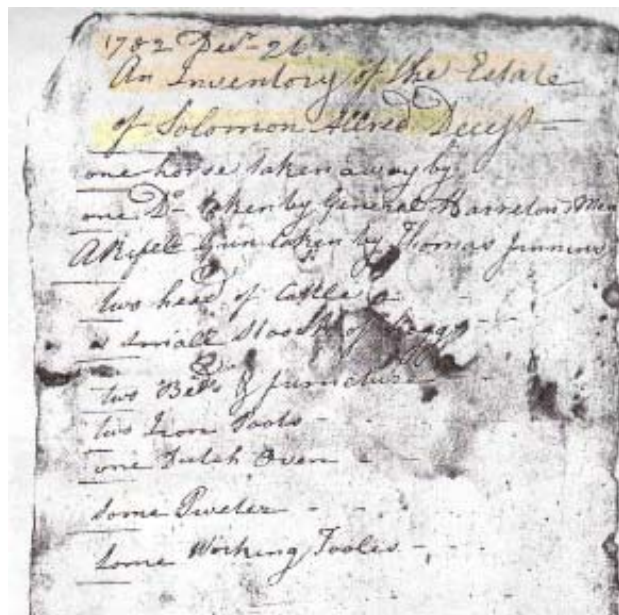 1782 Decr. 26
An Inventory of the Estate
of Solomon Allred Decest
one horse taken away by
one Do. taken by General Harreton Men
A Rifle Gun taken by Thomas Jinnins
two head of Cattle
a small Stock of Hogs
two Beds & furniture
two Iron Pots
one Dutch Oven
some Pweter
some Working Tooles